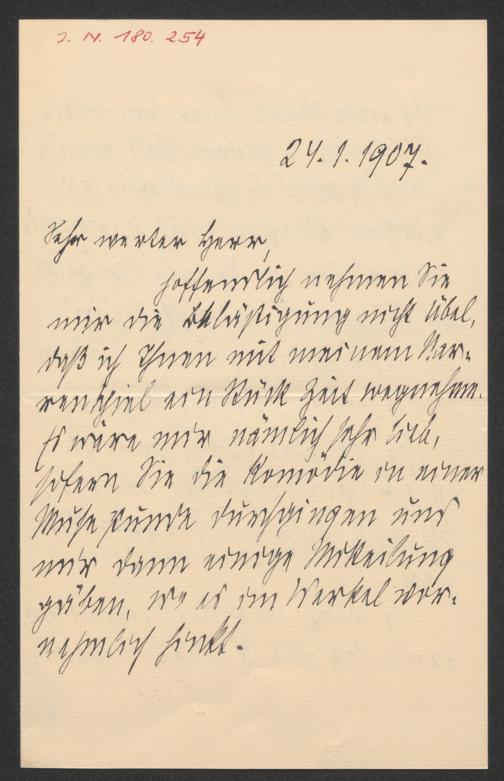 J. N. 180.254
24.1.1907.
Sehr werter Herr,
hoffendlich nehmen Sie
mir die Belästigung nicht übel,
daß ich Ihnen mit meinem Nar-
renspiel ein Stück Zeit wegnehme.
Es wäre mir nämlich sehr lieb,
sofern Sie die Komödie in einer
Musestunde durchgingen und
mir dann einige Mitteilung
gäben, wo es im Werkel vor-
nehmlich hinkt.